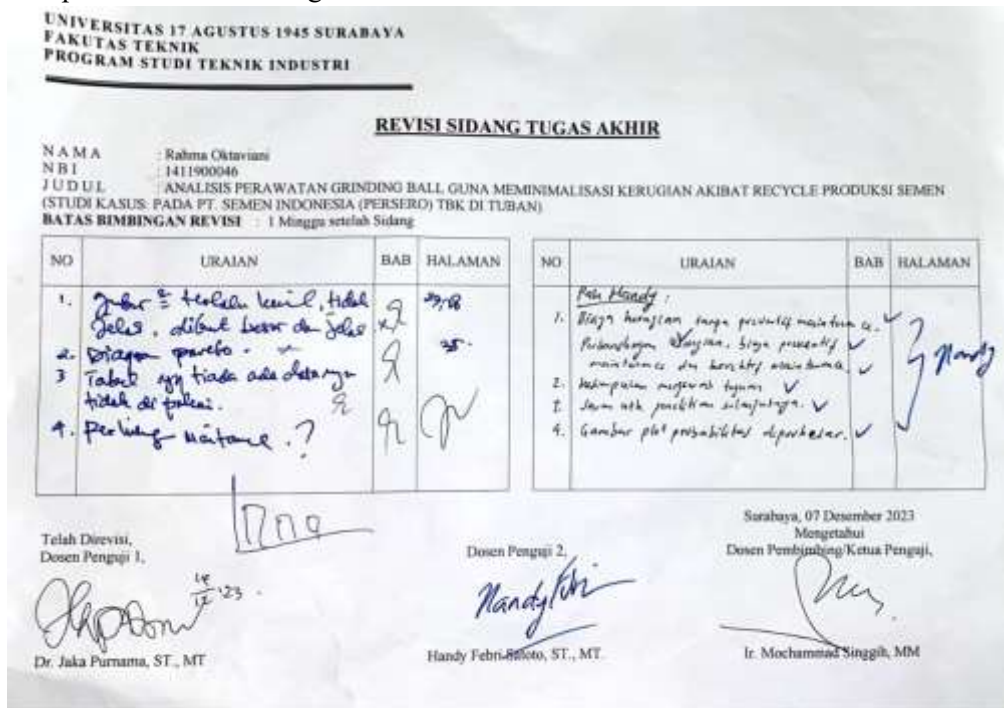 UNIVERSITAS 17 AGUSTUS 1945 SURABAYA
FAKUTAS TEKNIK
PROGRAM STUDI TEKNIK INDUSTRI
REVISI SIDANG TUGAS AKHIR
NAMA : Rahma Oktaviani
NBI : 1411900046
JUDUL : ANALISIS PERAWATAN GRINDING BALL GUNA MEMINIMALISASI KERUGIAN AKIBAT RECYCLE PRODUKSI SEMEN
(STUDI KASUS: PADA PT. SEMEN INDONESIA (PERSERO) TBK DI TUBAN)
BATAS BIMBINGAN REVISI : 1 Minggu setelah Sidang
NO URAIAN BAB HALAMAN
1. terlalu kecil, tidak
jelas, dibuat besar dan jelas
2. Diagram pareto.
3 Tabel yg tiada ada datanya
tidak di pakai.
4. ?
NO URAIAN BAB HALAMAN
Pak Handy :
1. Biaya kerugian tanpa preventif maintenance.
Perbandingan kerugian, biaya preventif
maintenance dan korektif maintenance.
2. kesimpulan menjawab tujuan
saran utk penelitian selanjutnya.
4. Gambar plot probabilitas diperbesar.
Handy
Surabaya, 07 Desember 2023
Telah Direvisi,
Dosen Penguji 1,
Dosen Penguji 2,
Mengetahui
Dosen Pembimbing/Ketua Penguji,
Dr. Jaka Purnama, ST., MT
Handy Febri Satoto, ST., MT.
Ir. Mochammad Singgih, MM